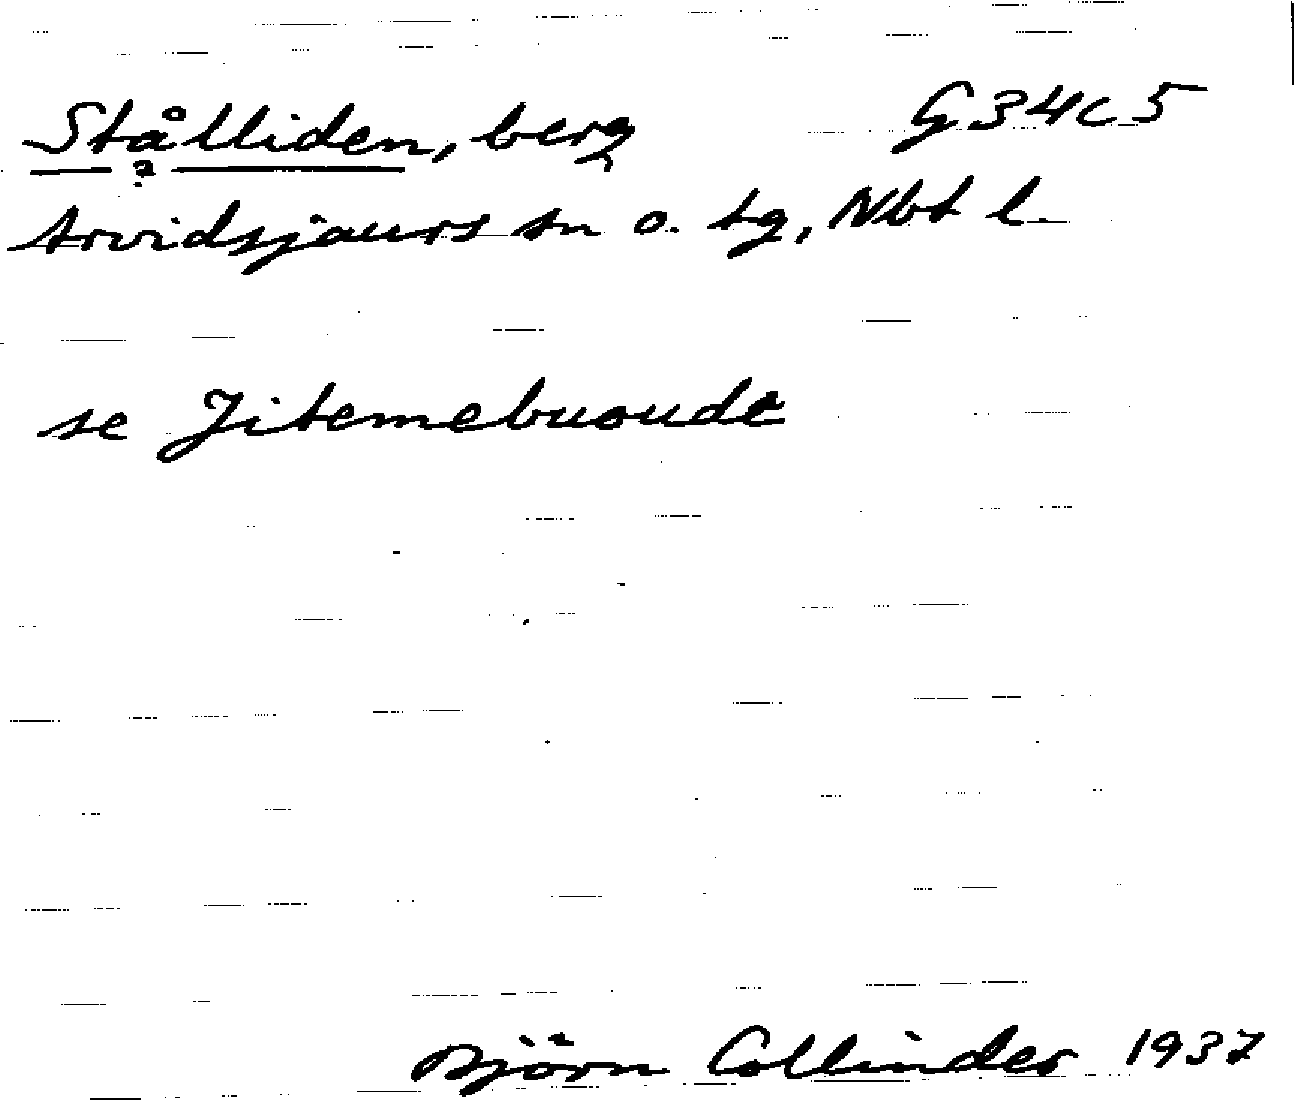 Stålliden, berg G34c5
?
Arvidsjaurs sn o. tg, Nbt l.
se Jitemebuoude
Björn Collinder 1937